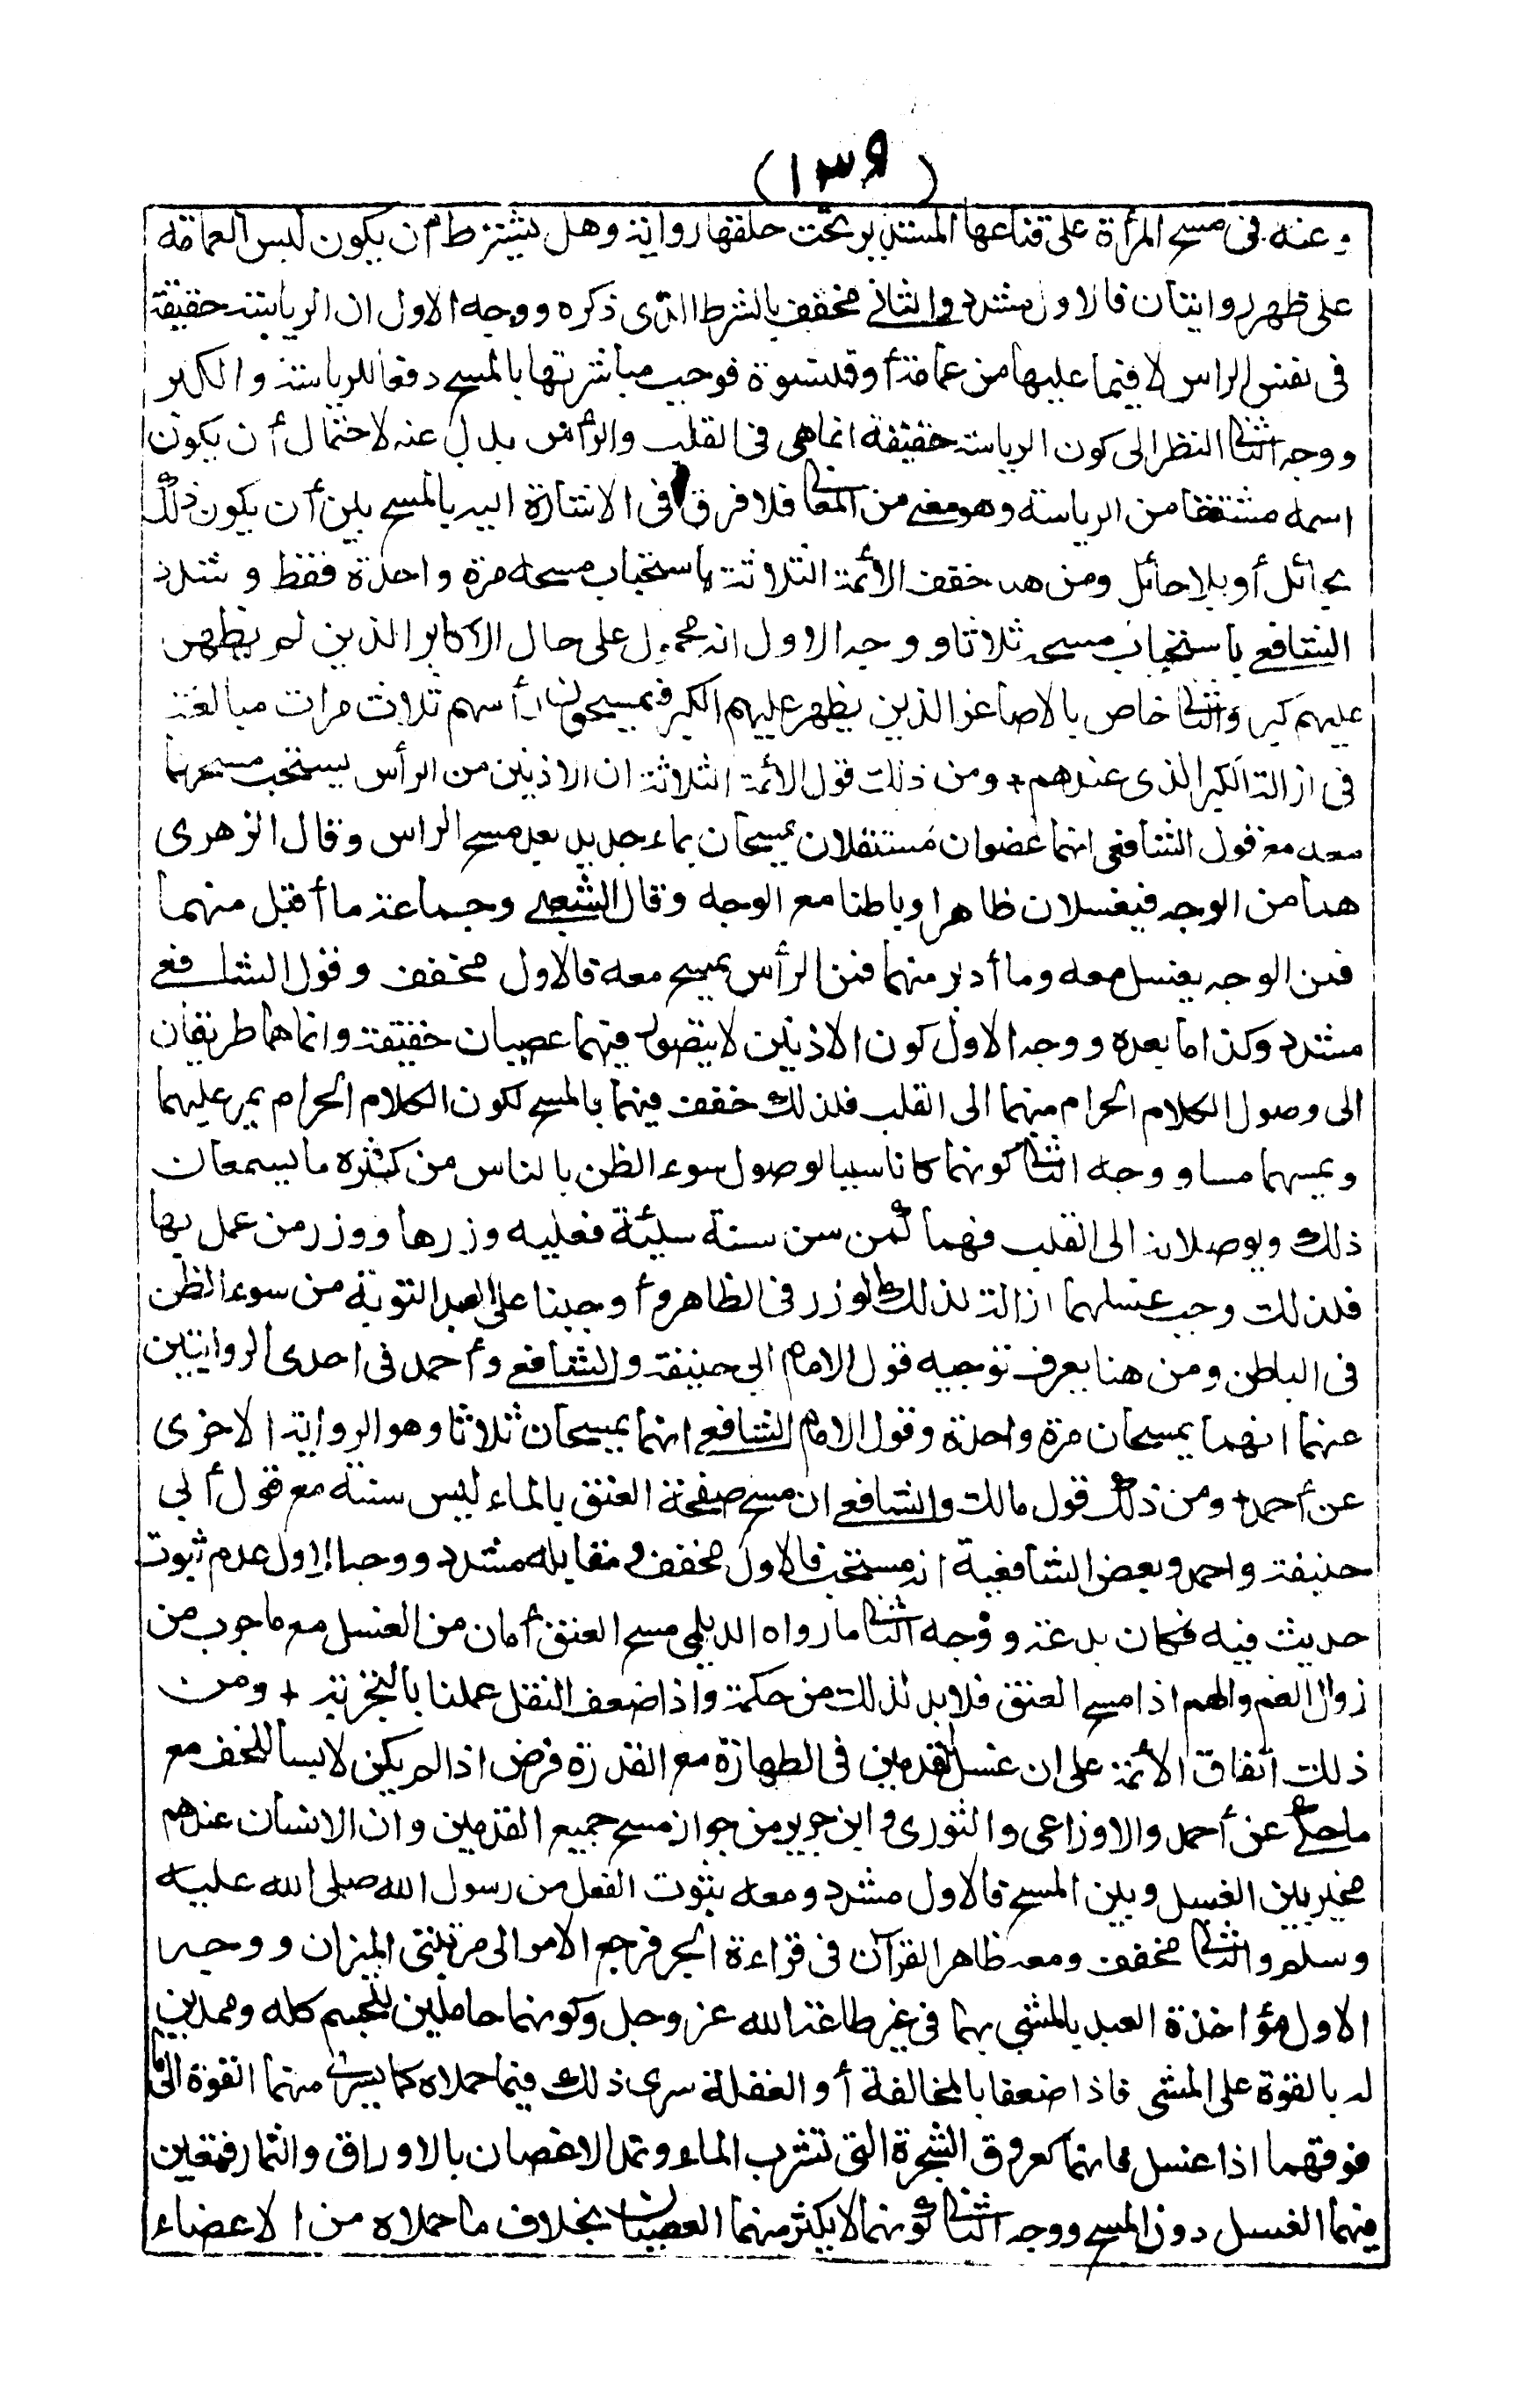 (١٣٩)
وعنه فى مسح المرأة على قناعها المستدير تحت حلقها رواية وهل يشترط أن يكون لبس العمامة
على طهر روايتان فالاول مشدد والثانى مخفف بالشرط الذى ذكره ووجه الاول ان الرياسة حقيقة
فى نفس الراس لا فيما عليها من عمامة أو قلنسوة فوجب مباشرتها بالمسح دفعا للرياسة والكبر
ووجه الثانى النظر الى كون الرياسة حقيقة انماهى فى القلب والرأس بدل عنه لاحتمال أن يكون
اسمه مشتقا من الرياسة وهو معنى من المعانى فلا فرق فى الاشارة اليه بالمسح بين أن يكون ذلك
بحائل أو بلا حائل ومن هنا خفف الأئمة الثلاثة باستحباب مسحه مرة واحدة فقط وشدد
الشافعى باستحباب مسحه ثلاثا ووجه الاول انه محمول على حال الاكابر الذين لم يظهر
عليهم كبر والثانى خاص بالاصاغر الذين يظهر عليهم الكبر فيمسحون رأسهم ثلاث مرات مبالغة
فى ازالة الكبر الذى عندهم + ومن ذلك قول الأئمة الثلاثة ان الاذنين من الرأس يستحب مسحهما
معه مع قول الشافعى انهما عضوان مستقلان يمسحان بماء جديد بعد مسح الراس وقال الزهرى
هما من الوجه فيغسلان ظاهرا وباطنا مع الوجه وقال الشعبى وجماعة ما أقبل منهما
فمن الوجه يغسل معه وما أدبر منهما فمن الرأس يمسح معه فالاول مخفف وقول الشافعى
مشدد وكذا ما بعده ووجه الاول كون الاذنين لا يتصور فيهما عصيان حقيقة وانما هما طريقان
الى وصول الكلام الحرام منهما الى القلب فلذلك خفف فيهما بالمسح لكون الكلام الحرام يمر عليهما
ويمسهما مسا ووجه الثانى كونهما كانا سببا لوصول سوء الظن بالناس من كثرة ما يسمعان
ذلك ويوصلانه الى القلب فهما كمن سن سنة سيئة فعليه وزرها ووزر من عمل بها
فلذلك وجب غسلهما ازالة لذلك الوزر فى الظاهر وأوجبنا على العبد التوبة من سوء الظن
فى الباطن ومن هنا يعرف توجيه قول الامام ابى حنيفة والشافعى وأحمد فى احدى الروايتين
عنهما انهما يمسحان مرة واحدة وقول الامام الشافعى انهما يمسحان ثلاثا وهو الرواية الاخرى
عن أحمد + ومن ذلك قول مالك والشافعى ان مسح صفحة العنق بالماء ليس سنة مع قول أبى
حنيفة واحمد وبعض الشافعية انه مستحب فالاول مخفف ومقابله مشدد ووجه الاول عدم ثبوت
حديث فيه فكان بدعة ووجه الثانى ما رواه الديلمى مسح العنق أمان من الغسل مع ما جرب من
زوال الغم والهم اذا مسح العنق فلابد لذلك من حكمة واذا ضعف النقل عملنا بالتجربة + ومن
ذلك اتفاق الأئمة على ان غسل القدمين فى الطهارة مع القدرة فرض اذا لم يكن لابسا للخف مع
ما حكى عن أحمد والاوزاعى والثورى وابن جرير من جواز مسح جميع القدمين وان الانسان عندهم
مخير بين الغسل وبين المسح فالاول مشدد ومعه ثبوت الفعل من رسول الله صلى الله عليه
وسلم والثانى مخفف ومعه ظاهر القرآن فى قراءة الجر فرجع الامر الى مرتبتى الميزان ووجه
الاول مؤاخذة العبد بالمشى بهما فى غير طاعة الله عز وجل وكونهما حاملين للجسم كله وممدين
له بالقوة على المشى فاذا ضعفا بالمخالفة أو الغفلة سرى ذلك فيما حملاه كما يسرى منهما القوة الى ما
فوقهما اذا غسل فانهما كعروق الشجرة التى تشرب الماء وتمد الاغصان بالاوراق والثمار فتعين
فيهما الغسل دون المسح ووجه الثانى كونهما لا يكثر منهما العصيان بخلاف ما حملاه من الاعضاء